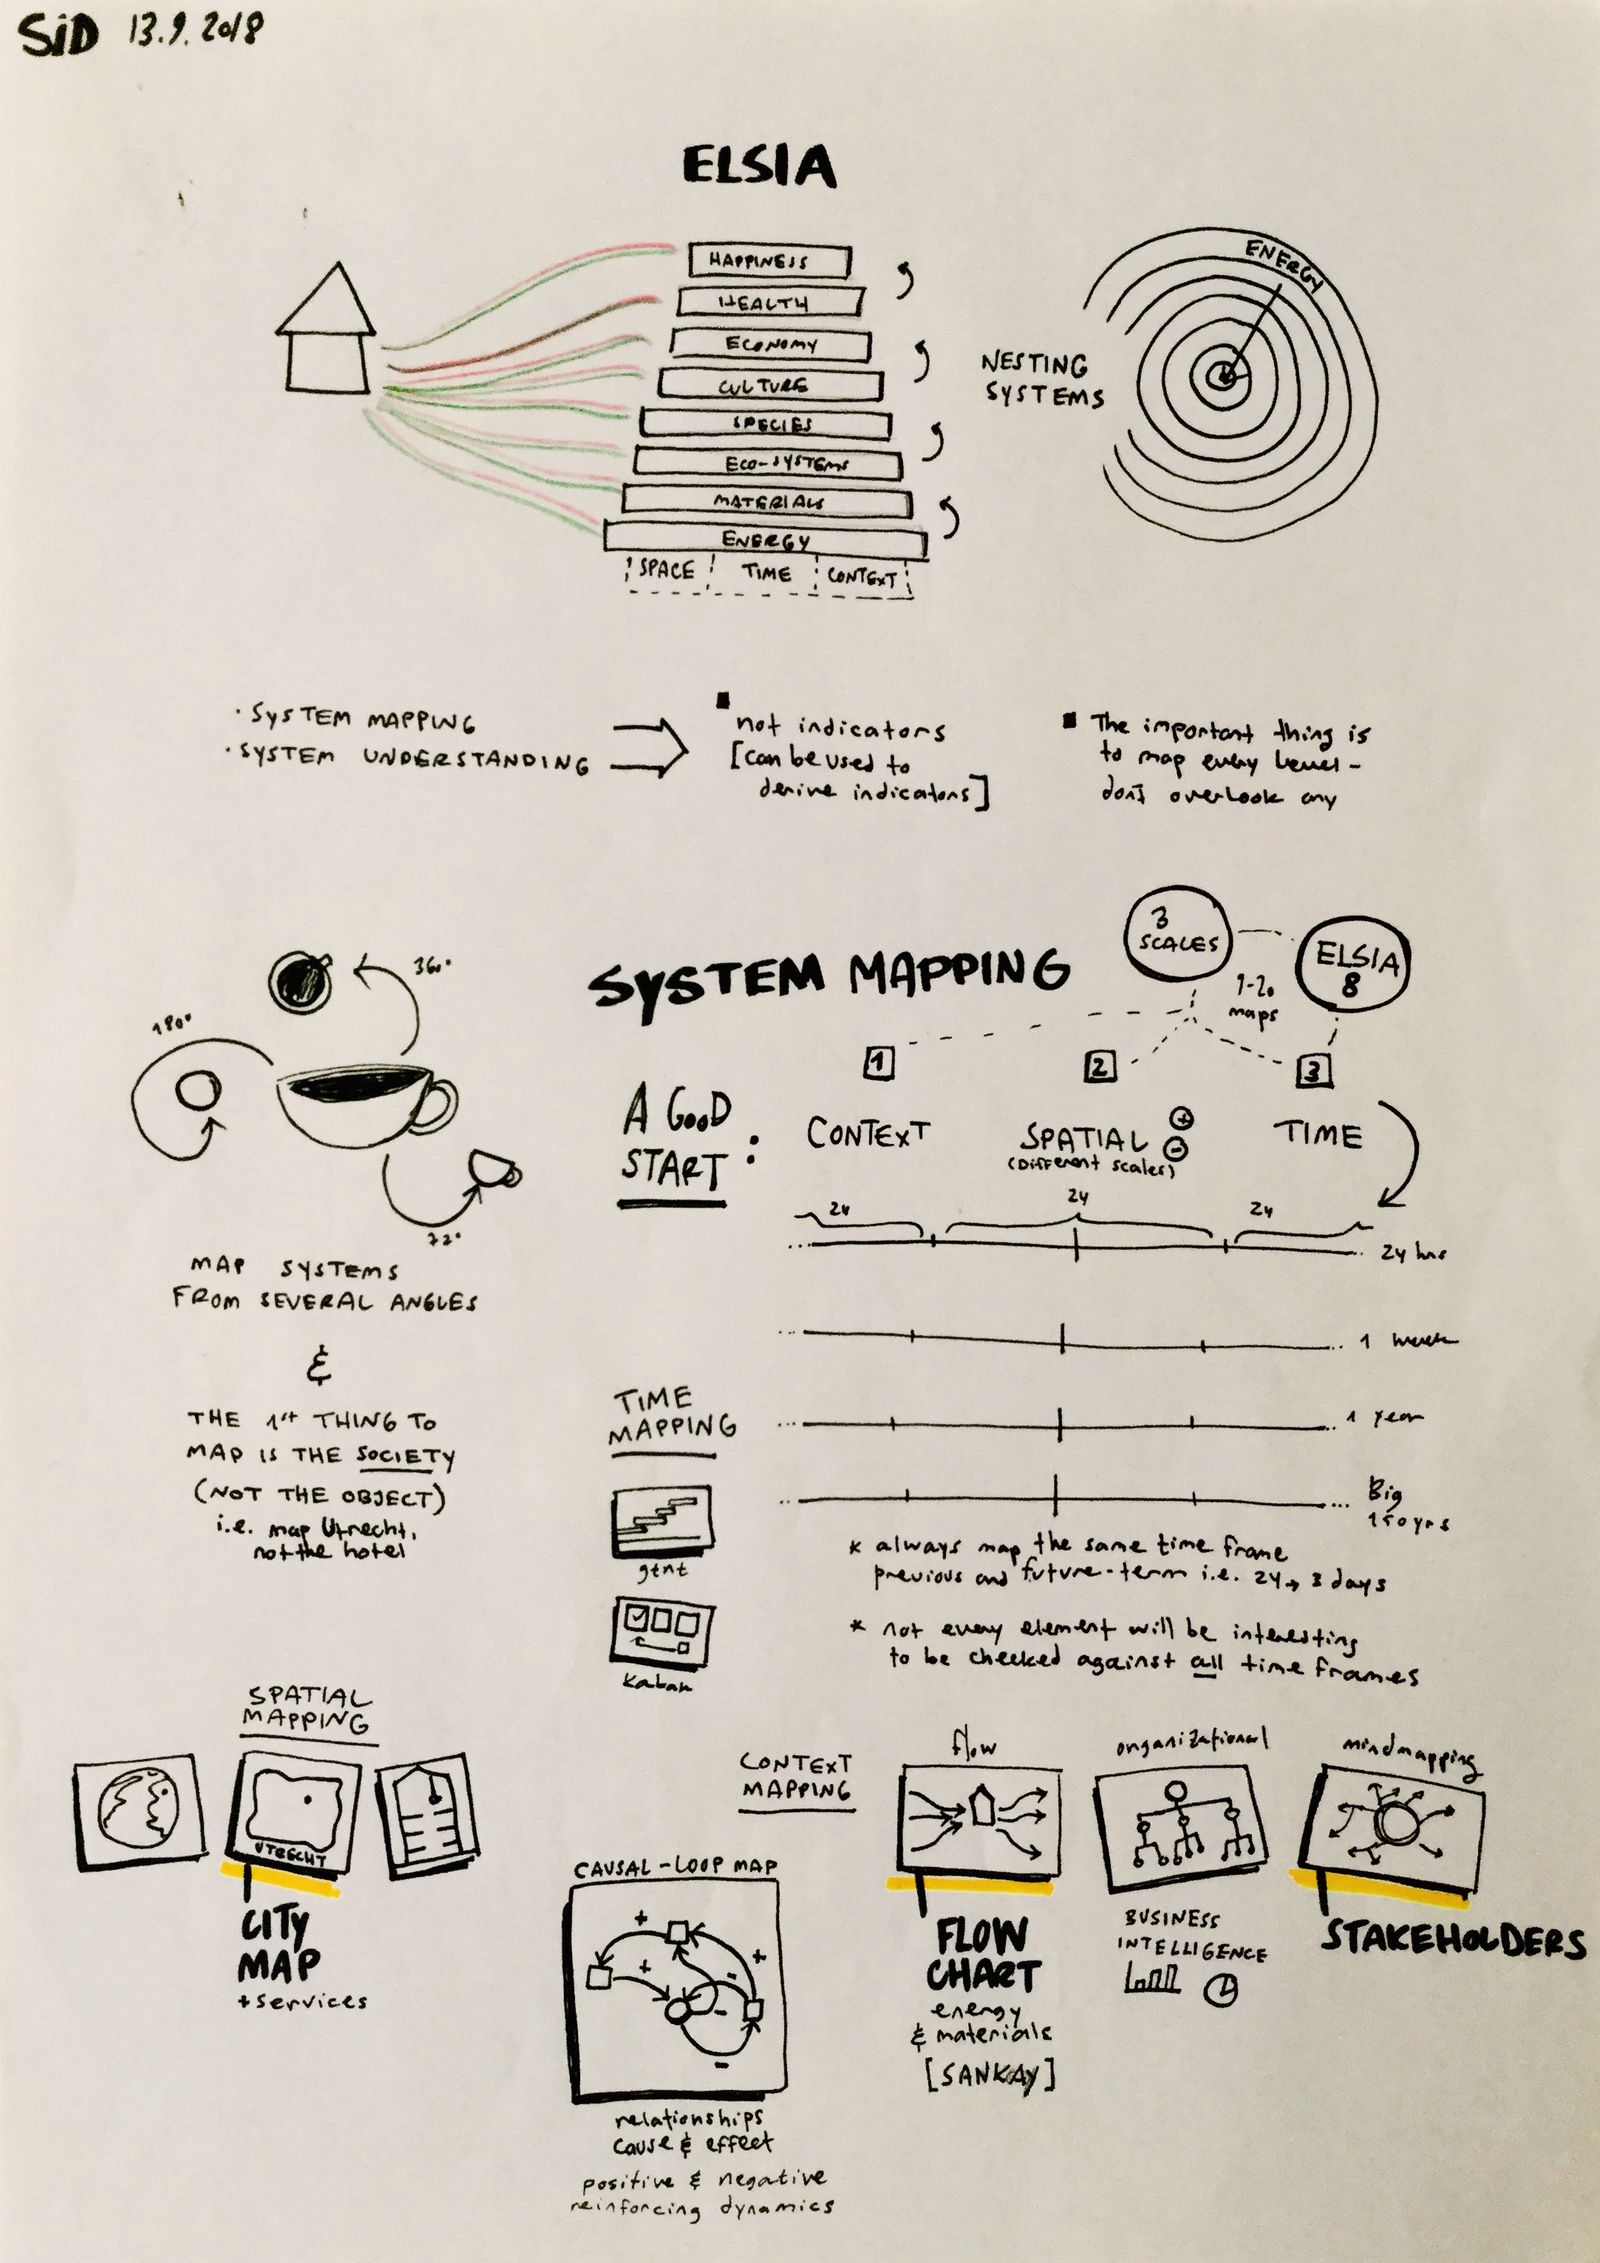 SiD 13.9.2018
ELSIA
HAPPINESS
HEALTH
ECONOMY
CULTURE
SPECIES
ECO-SYSTEMS
MATERIALS
ENERGY
SPACE
TIME
CONTEXT
NESTING
SYSTEMS
ENERGY
· SYSTEM MAPPING
· SYSTEM UNDERSTANDING
not indicators
[can be used to
derive indicators]
The important thing is
to map every level -
don't overlook any
360°
180°
72°
MAP SYSTEMS
FROM SEVERAL ANGLES
&
THE 1st THING TO
MAP IS THE SOCIETY
(NOT THE OBJECT)
i.e. map Utrecht,
not the hotel
SYSTEM MAPPING
3
SCALES
ELSIA
8
maps
A GOOD
START:
1
CONTEXT
2
SPATIAL + -
(Different scales)
3
TIME
24
24
24
24 hrs
1 week
1 year
Big
150 yrs
TIME
MAPPING
gtnt
kaban
* always map the same time frame
previous and future-term i.e. 24 → 3 days
* not every element will be interesting
to be checked against all time frames
SPATIAL
MAPPING
UTRECHT
CITY
MAP
+services
CONTEXT
MAPPING
flow
organizational
mindmapping
FLOW
CHART
energy
& materials
[SANKAY]
BUSINESS
INTELLIGENCE
STAKEHOLDERS
CAUSAL-LOOP MAP
+
+
+
-
-
-
relationships
cause & effect
positive & negative
reinforcing dynamics